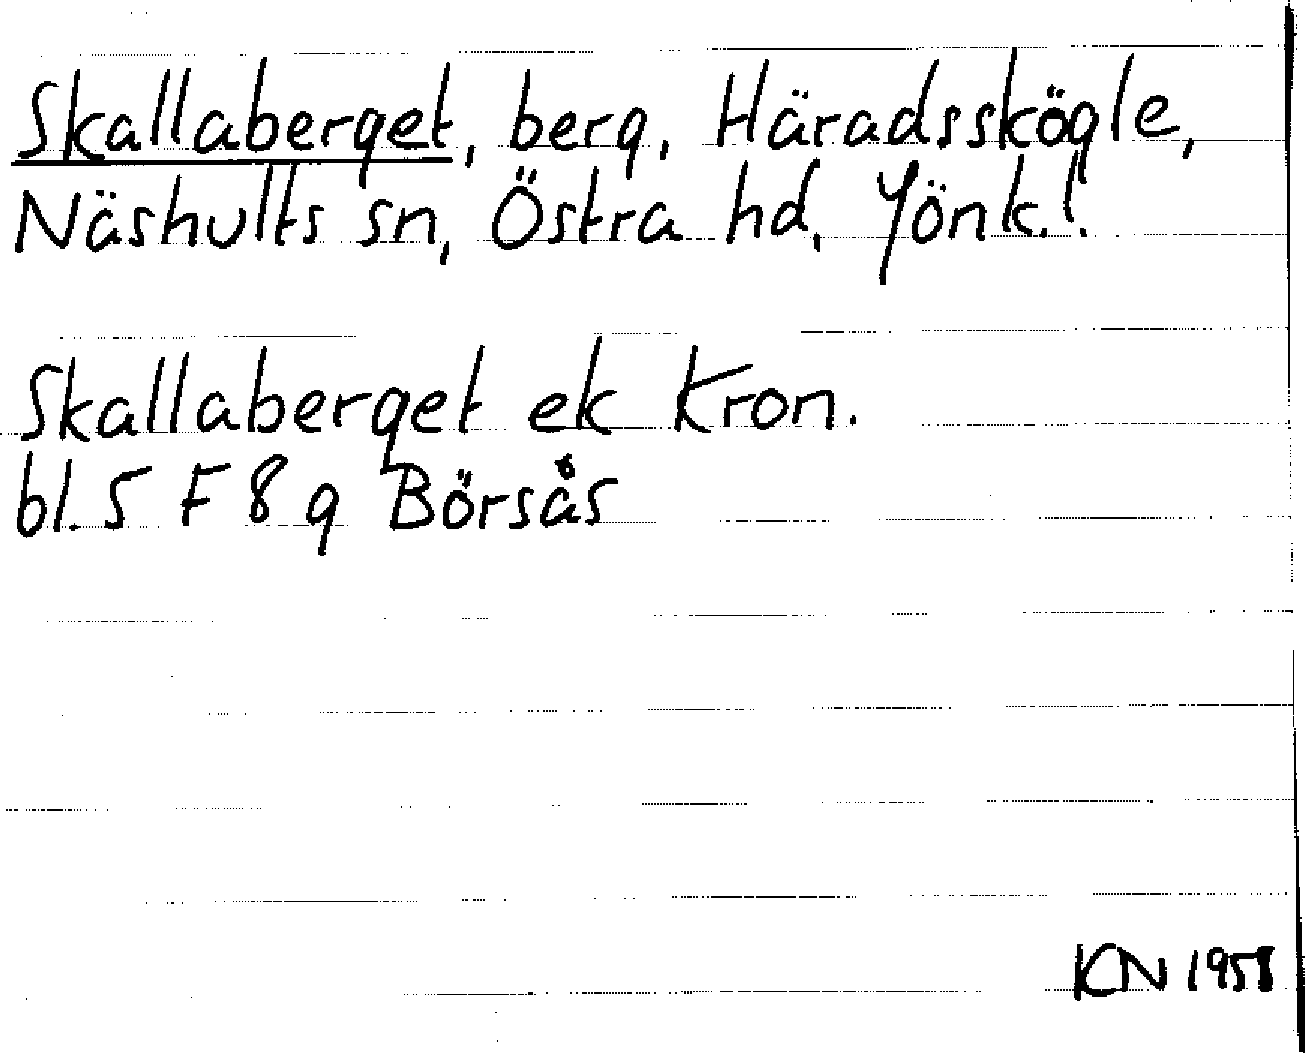 Skallaberget, berg, Häradsskögle,
Näshults sn, Östra hd, Jönk. l.
Skallaberget ek Kron.
bl. 5 F 8 g Börsås
KN 1958